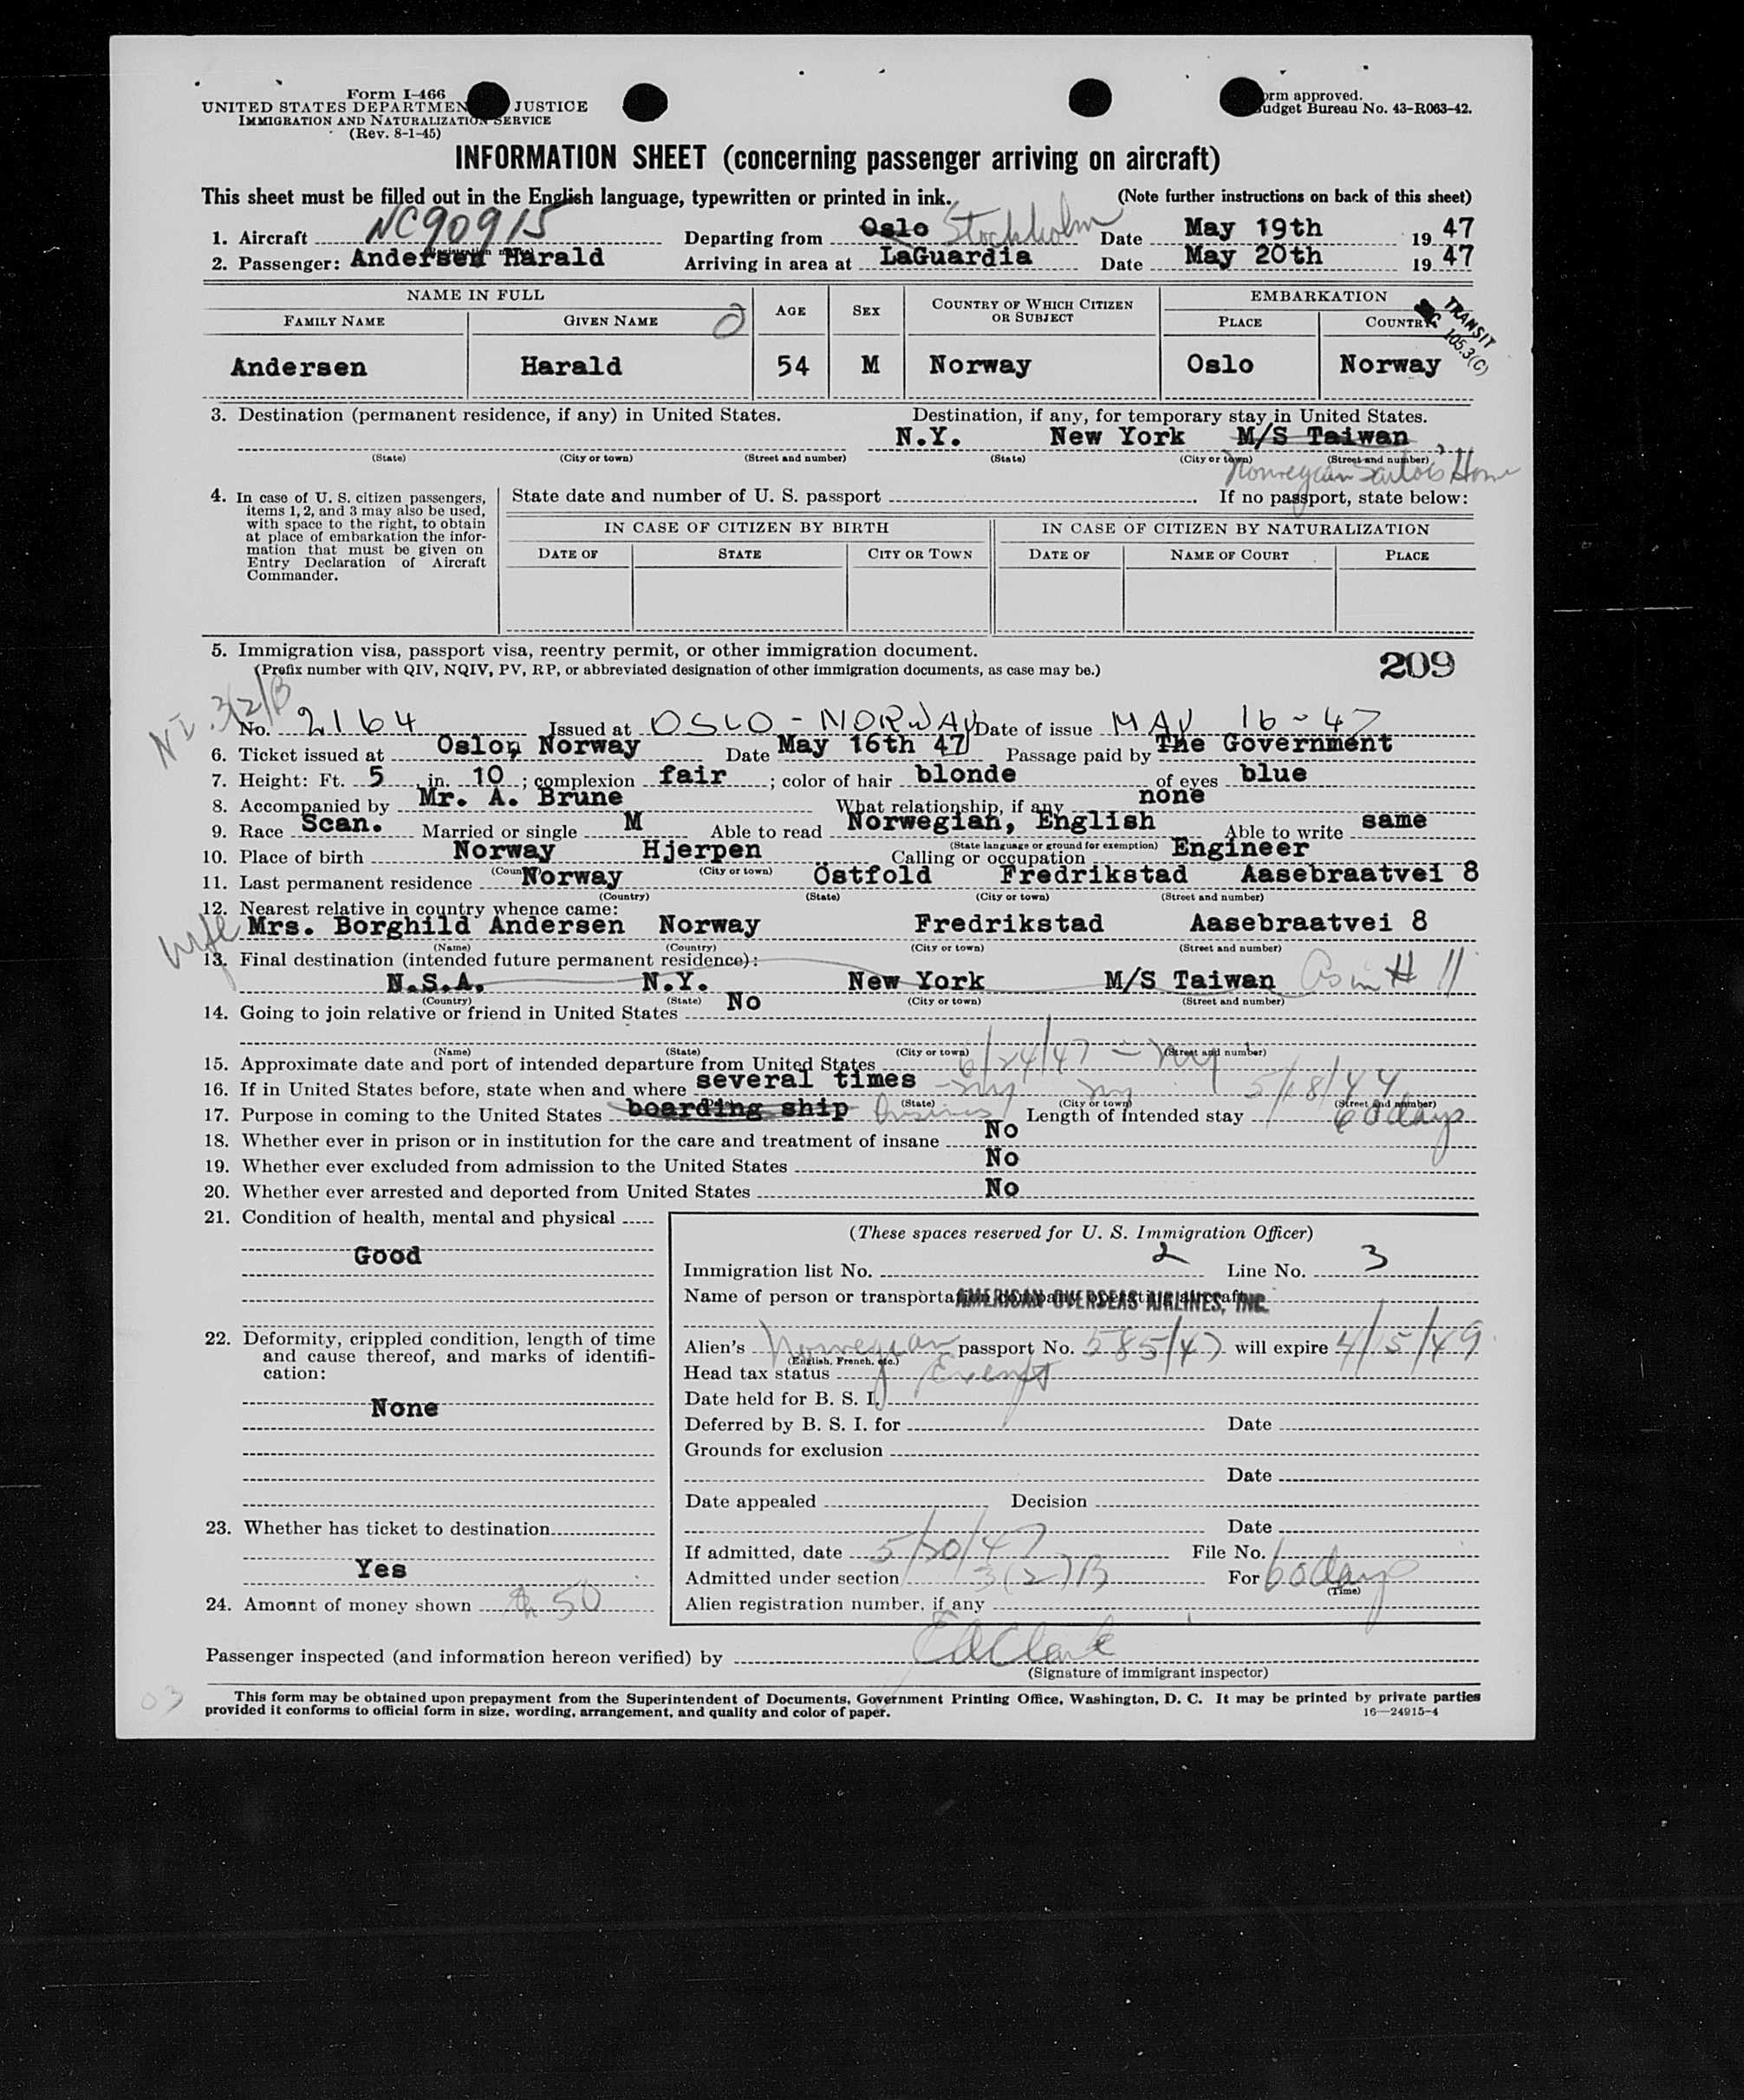 Form I-466
UNITED STATES DEPARTMEN JUSTICE
IMMIGRATION AND NATURALIZATION SERVICE
(Rev. 8-1-45)
orm approved.
udget Bureau No. 43-R063-42.
INFORMATION SHEET (concerning passenger arriving on aircraft)
This sheet must be filled out in the English language, typewritten or printed in ink. (Note further instructions on back of this sheet)
1. Aircraft NC90915 Departing from Oslo Stockholm Date May 19th 1947
2. Passenger: Andersen Harald Arriving in area at LaGuardia Date May 20th 1947
NAME IN FULL AGE SEX COUNTRY OF WHICH CITIZEN OR SUBJECT EMBARKATION
FAMILY NAME GIVEN NAME PLACE COUNTRY
TRANSIT
105.3(C)
Andersen Harald 54 M Norway Oslo Norway
3. Destination (permanent residence, if any) in United States. Destination, if any, for temporary stay in United States.
N.Y. New York M/S Taiwan
(State) (City or town) (Street and number) (State) (City or town) (Street and number)
Norwegian Sailors Home
4. In case of U. S. citizen passengers, items 1, 2, and 3 may also be used, with space to the right, to obtain at place of embarkation the information that must be given on Entry Declaration of Aircraft Commander.
State date and number of U. S. passport If no passport, state below:
IN CASE OF CITIZEN BY BIRTH IN CASE OF CITIZEN BY NATURALIZATION
DATE OF STATE CITY OR TOWN DATE OF NAME OF COURT PLACE
5. Immigration visa, passport visa, reentry permit, or other immigration document.
(Prefix number with QIV, NQIV, PV, RP, or abbreviated designation of other immigration documents, as case may be.)
209
NI 3(2)B
No. 2164 Issued at OSLO - NORWAY Date of issue MAY 16 - 47
6. Ticket issued at Oslo, Norway Date May 16th 47 Passage paid by The Government
7. Height: Ft. 5 in. 10; complexion fair; color of hair blonde of eyes blue
8. Accompanied by Mr. A. Brune What relationship, if any none
9. Race Scan. Married or single M Able to read Norwegian, English Able to write same
(State language or ground for exemption)
10. Place of birth Norway Hjerpen Calling or occupation Engineer
(City or town)
11. Last permanent residence Norway Östfold Fredrikstad Aasebraatvei 8
(Country) (State) (City or town) (Street and number)
12. Nearest relative in country whence came:
wife Mrs. Borghild Andersen Norway Fredrikstad Aasebraatvei 8
(Name) (Country) (City or town) (Street and number)
13. Final destination (intended future permanent residence):
N.S.A. N.Y. New York M/S Taiwan As in # 11
(Country) (State) (City or town) (Street and number)
14. Going to join relative or friend in United States No
(Name) (State) (City or town) (Street and number)
15. Approximate date and port of intended departure from United States 6/24/47 - NY
16. If in United States before, state when and where several times - NY NY 5/18/44
(State) (City or town) (Street and number)
17. Purpose in coming to the United States boarding ship Business Length of intended stay 60 days
18. Whether ever in prison or in institution for the care and treatment of insane No
19. Whether ever excluded from admission to the United States No
20. Whether ever arrested and deported from United States No
21. Condition of health, mental and physical
Good
22. Deformity, crippled condition, length of time and cause thereof, and marks of identification:
None
23. Whether has ticket to destination
Yes
24. Amount of money shown $ 50
(These spaces reserved for U. S. Immigration Officer)
Immigration list No. 2 Line No. 3
Name of person or transportation company operating aircraft AMERICAN OVERSEAS AIRLINES, INC.
Alien's Norwegian passport No. 585/47 will expire 4/15/49
(English, French, etc.)
Head tax status Exempt
Date held for B. S. I.
Deferred by B. S. I. for Date
Grounds for exclusion
Date
Date appealed Decision
Date
If admitted, date 5/20/47 File No.
Admitted under section 3(2)B For 60 days
(Time)
Alien registration number, if any
Passenger inspected (and information hereon verified) by EAClark
(Signature of immigrant inspector)
This form may be obtained upon prepayment from the Superintendent of Documents, Government Printing Office, Washington, D. C. It may be printed by private parties
provided it conforms to official form in size, wording, arrangement, and quality and color of paper. 16—24915-4
03